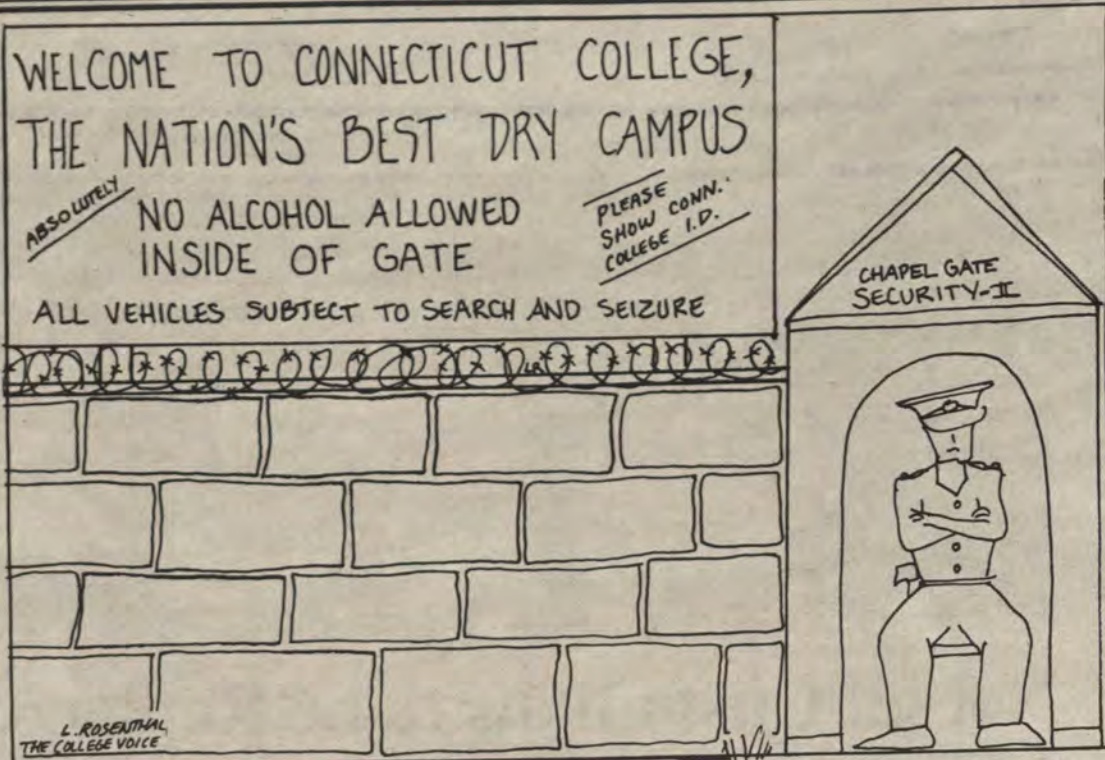 WELCOME TO CONNECTICUT COLLEGE,
THE NATION'S BEST DRY CAMPUS
ABSOLUTELY
NO ALCOHOL ALLOWED
INSIDE OF GATE
PLEASE
SHOW CONN.
COLLEGE I.D.
ALL VEHICLES SUBJECT TO SEARCH AND SEIZURE
CHAPEL GATE
SECURITY-II
L. ROSENTHAL
THE COLLEGE VOICE